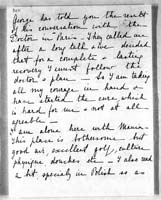 George has told you the result
of his conversation with the
Doctor in Paris. They called me
after a long talk & we decided
that for a complete & lasting
recovery I must follow this
doctor's plan. So I am taking
all my courage in hand &
have started the cure which
is hard for me & not at all
agreeable.
I am alone here with Mania.
This place is bothersome but
good air, excellent golf, culture
physique douches etc. I also read
a lot specially in Polish so as